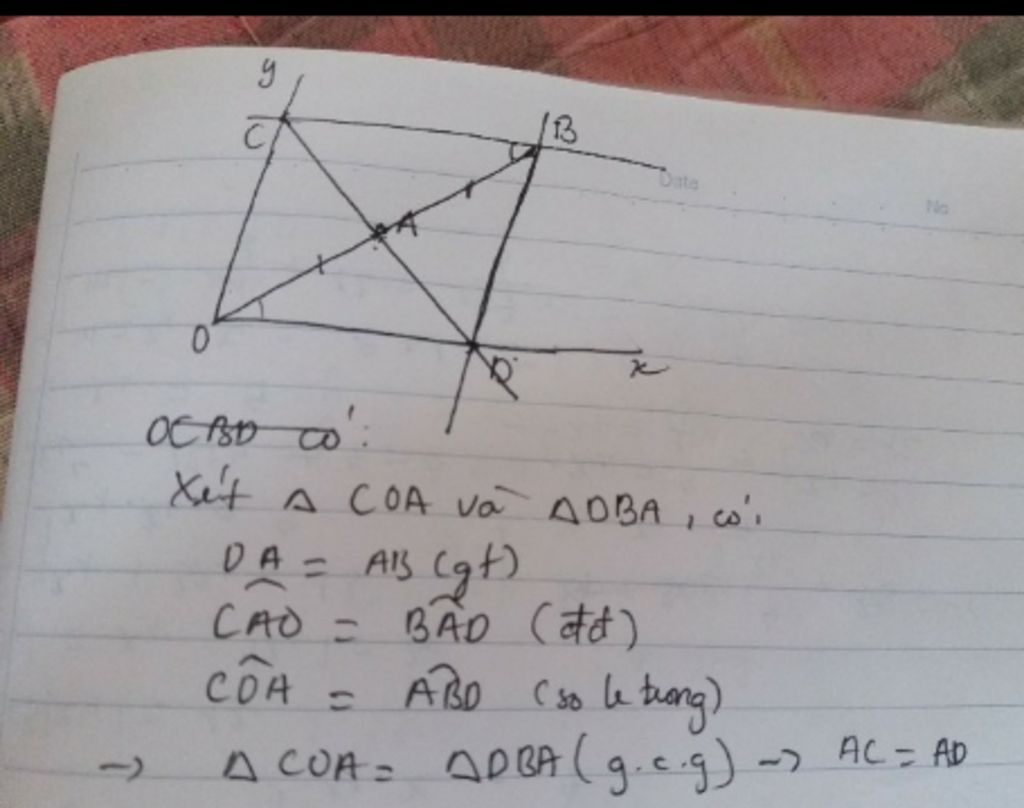 y
C
B
Date
No
A
O
D
x
OCBD có:
Xét Δ COA và ΔDBA, có:
OA = AB (gt)
CAO = BAD (đđ)
COA = ABD (so le trong)
→ Δ COA = ΔDBA (g.c.g) → AC = AD